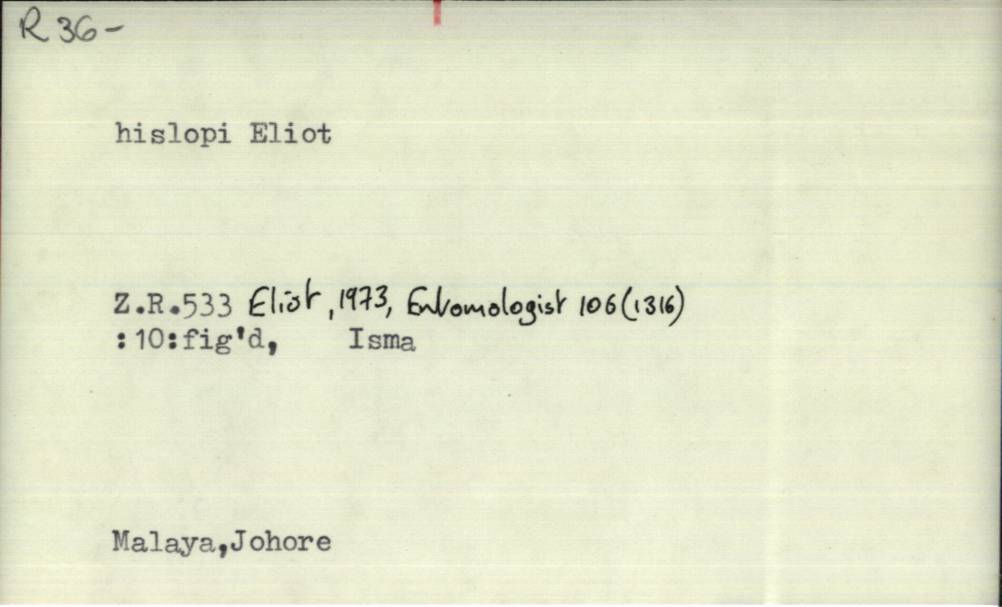 R 36-
hislopi Eliot
Z.R.533 Eliot, 1973, Entomologist 106(1316)
:10:fig'd, Isma
Malaya,Johore